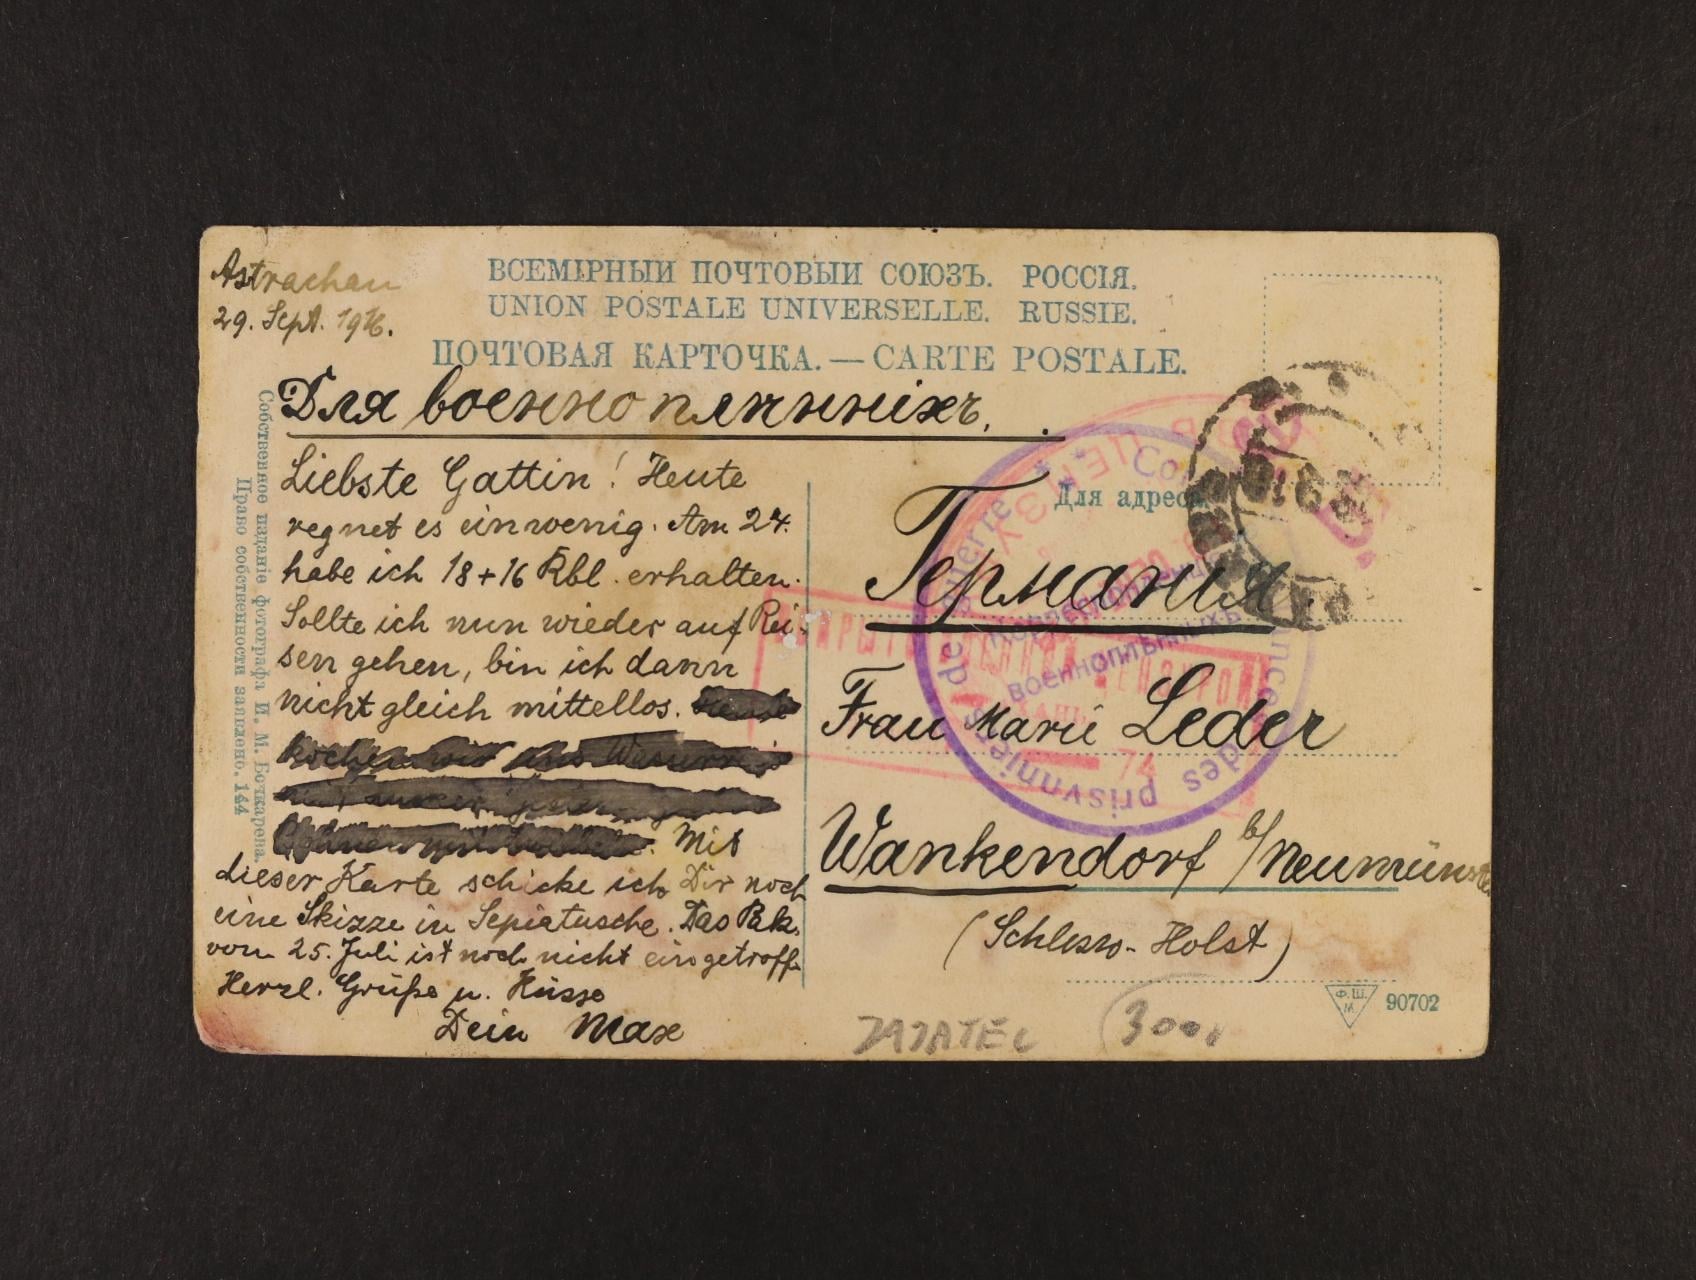 Astrachan
29. Sept. 1916.
ВСЕМІРНЫЙ ПОЧТОВЫЙ СОЮЗЪ. РОССІЯ.
UNION POSTALE UNIVERSELLE. RUSSIE.
ПОЧТОВАЯ КАРТОЧКА. — CARTE POSTALE.
Для военноплѣнніхъ.
Liebste Gattin! Heute
regnet es ein wenig. Am 24.
habe ich 18 + 16 Rbl. erhalten.
Sollte ich nun wieder auf Rei-
sen gehen, bin ich dann
nicht gleich mittellos.
Mit
dieser Karte schicke ich Dir noch
eine Skizze in Sepiatusche. Das Pak.
vom 25. Juli ist noch nicht eingetroff.
Herzl. Grüße u. Küsse
Dein Max
Собственное изданіе фотографа И. М. Бочкарева.
Право собственности заявлено. 144
Для адреса
Германия.
Frau Marie Leder
Wankendorf b/Neumünster
(Schlesw.-Holst)
des prisvnniers de
военноплѣнныхъ
74
Ф. Ш.
М.
90702
300,